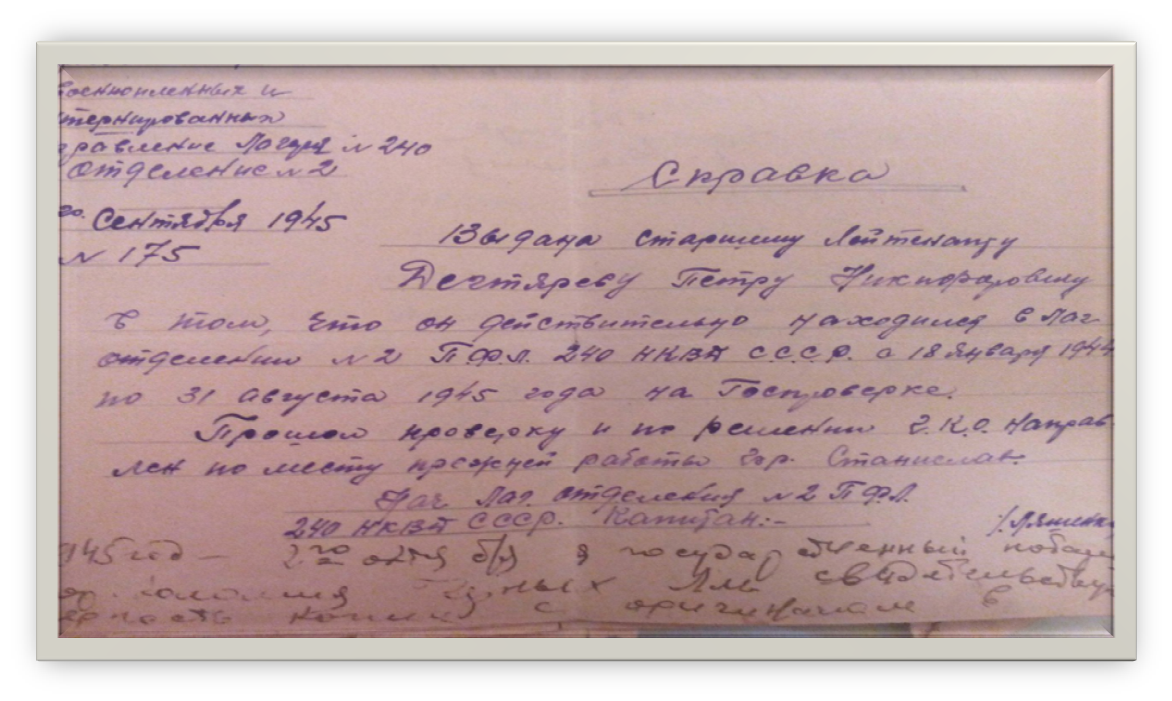 военнопленных и
тернированных
правление Лагеря N 240
отделение N 2
го Сентября 1945
N 175
Справка
Выдана старшему Лейтенанту
Дегтяреву Петру Никифоровичу
в том, что он действительно находился в Лаг
отделении N 2 ПФЛ. 240 НКВД СССР. с 18 января 1944
по 31 августа 1945 года на Госпроверке.
Прошел проверку и по решении Г.К.О. направ-
лен по месту прежней работы гор. Станислав.
Нач Лаг. отделения N 2 ПФЛ.
240 НКВД СССР. Капитан:- /Ляшенко
1945 год — 2го окт я государственный
свидетельствую
верность копии с оригиналом в